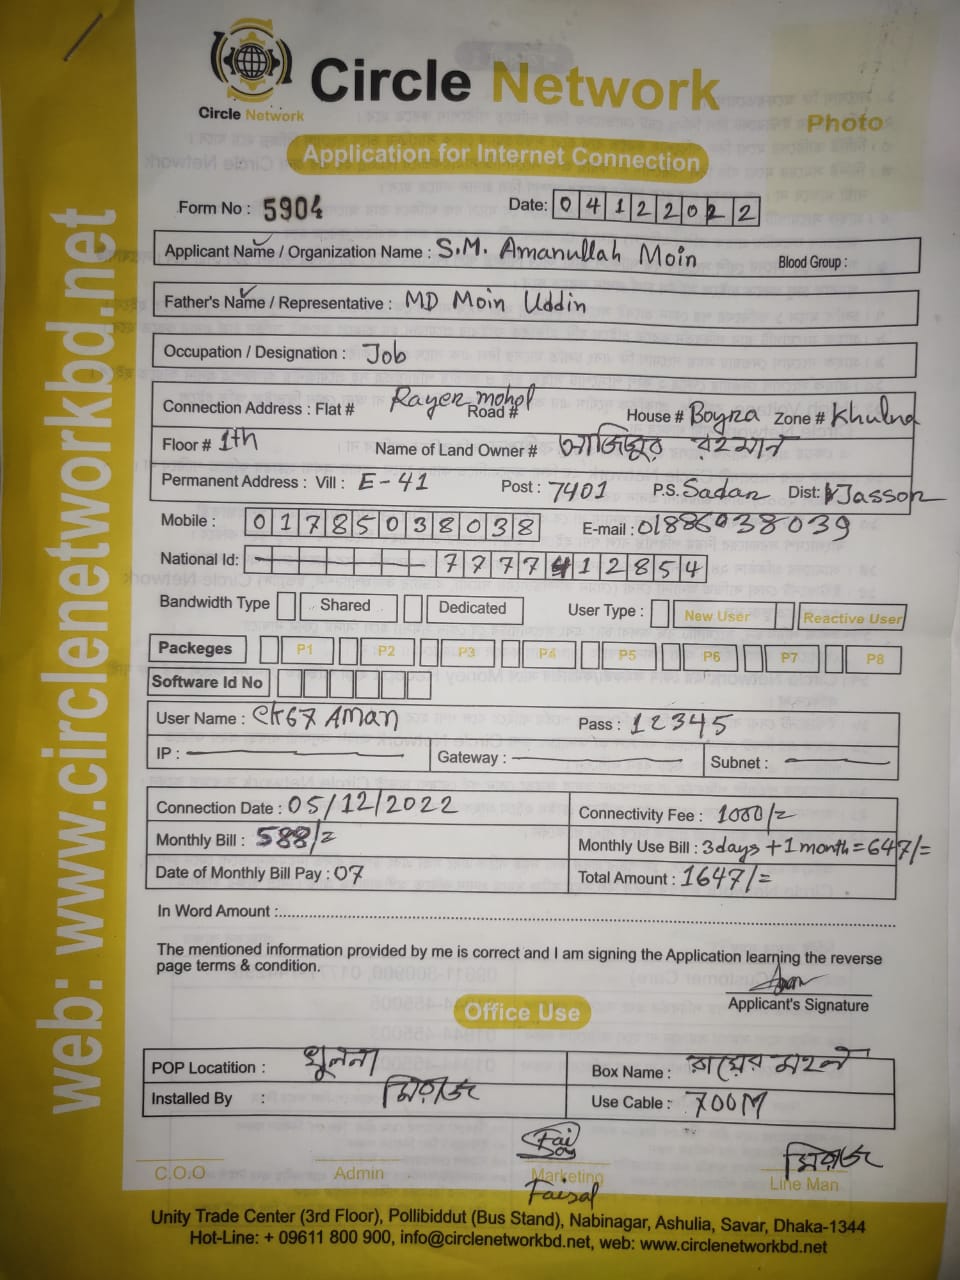 Circle Network
Circle Network
Photo
Application for Internet Connection
Form No : 5904
Date: 04122022
Applicant Name / Organization Name : S.M. Amanullah Moin Blood Group :
Father's Name / Representative : MD Moin Uddin
Occupation / Designation : Job
Connection Address : Flat # Rayer mohol Road # House # Boyra Zone # Khulna
Floor # 1th Name of Land Owner # আজিজুর রহমান
Permanent Address : Vill : E-41 Post : 7401 P.S. Sadar Dist: Jassor
Mobile : 01785038038 E-mail : 01886038039
National Id: 7777412854
Bandwidth Type Shared Dedicated User Type : New User Reactive User
Packeges P1 P2 P3 P4 P5 P6 P7 P8
Software Id No
User Name : ck67 Aman Pass : 12345
IP : Gateway : Subnet :
Connection Date : 05/12/2022 Connectivity Fee : 1000/=
Monthly Bill : 588/= Monthly Use Bill : 3days + 1 month = 647/=
Date of Monthly Bill Pay : 07 Total Amount : 1647/=
In Word Amount :
The mentioned information provided by me is correct and I am signing the Application learning the reverse
page terms & condition.
Applicant's Signature
Office Use
POP Locatition : খুলনা Box Name : রায়ের মহল
Installed By : মিরাজ Use Cable : 700M
C.O.O Admin Marketing Line Man
Faisal মিরাজ
Unity Trade Center (3rd Floor), Pollibiddut (Bus Stand), Nabinagar, Ashulia, Savar, Dhaka-1344
Hot-Line: + 09611 800 900, info@circlenetworkbd.net, web: www.circlenetworkbd.net
web: www.circlenetworkbd.net